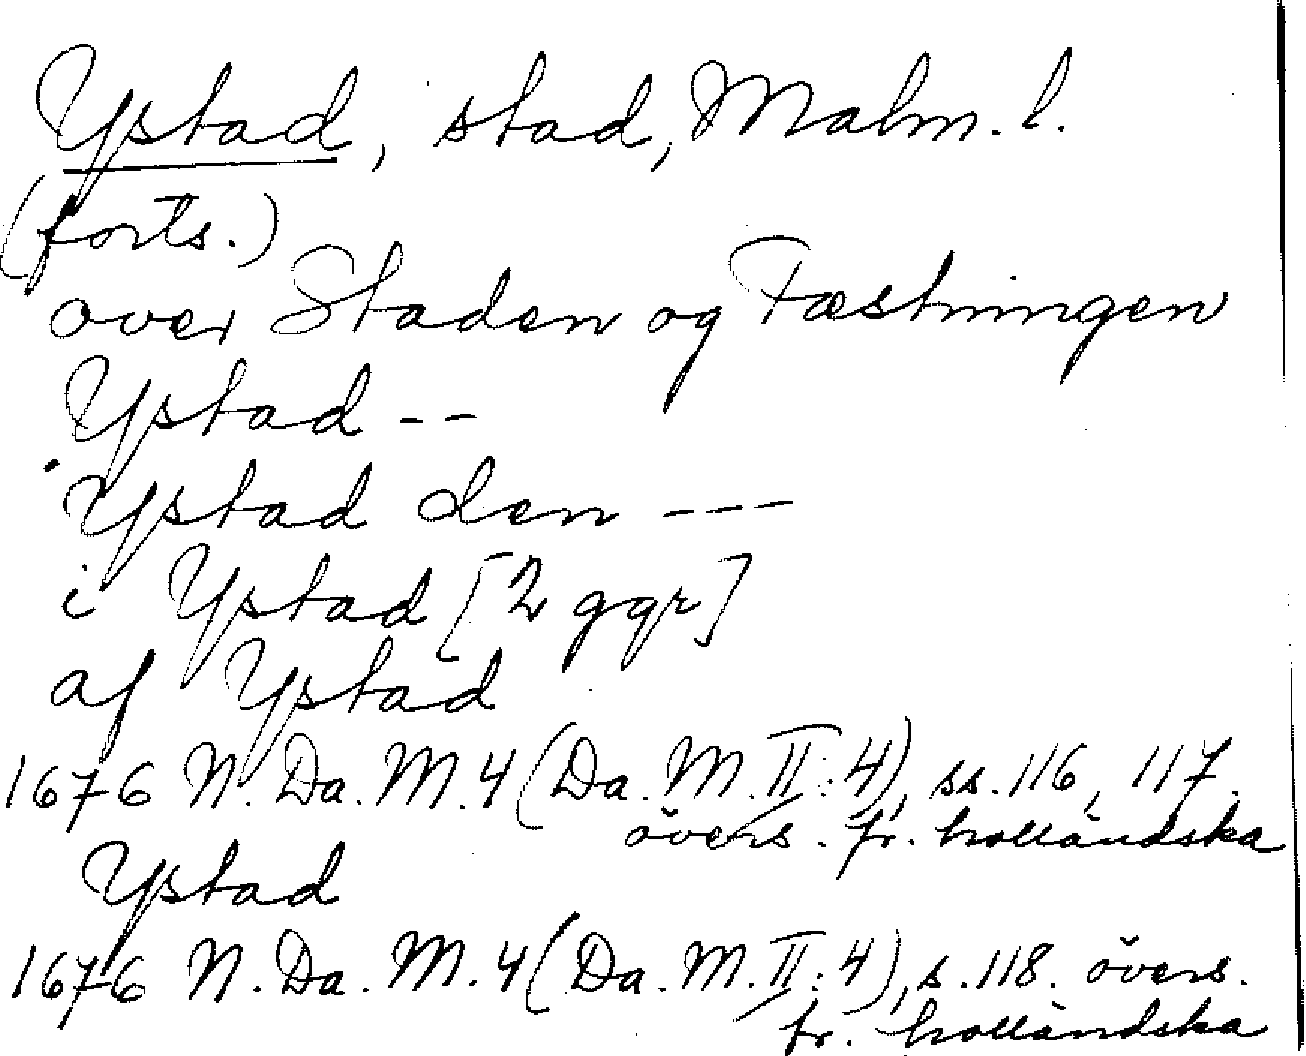 Ystad, stad, Malm. l.
(forts.)
over Staden og Fæstningen
Ystad --
Ystad den ---
i Ystad [2 ggr]
af Ystad
1676 N. Da. M. 4 (Da. M. II: 4), ss. 116, 117.
övers. fr. holländska
Ystad
1676 N. Da. M. 4 (Da. M. II: 4), s. 118. övers.
fr. holländska